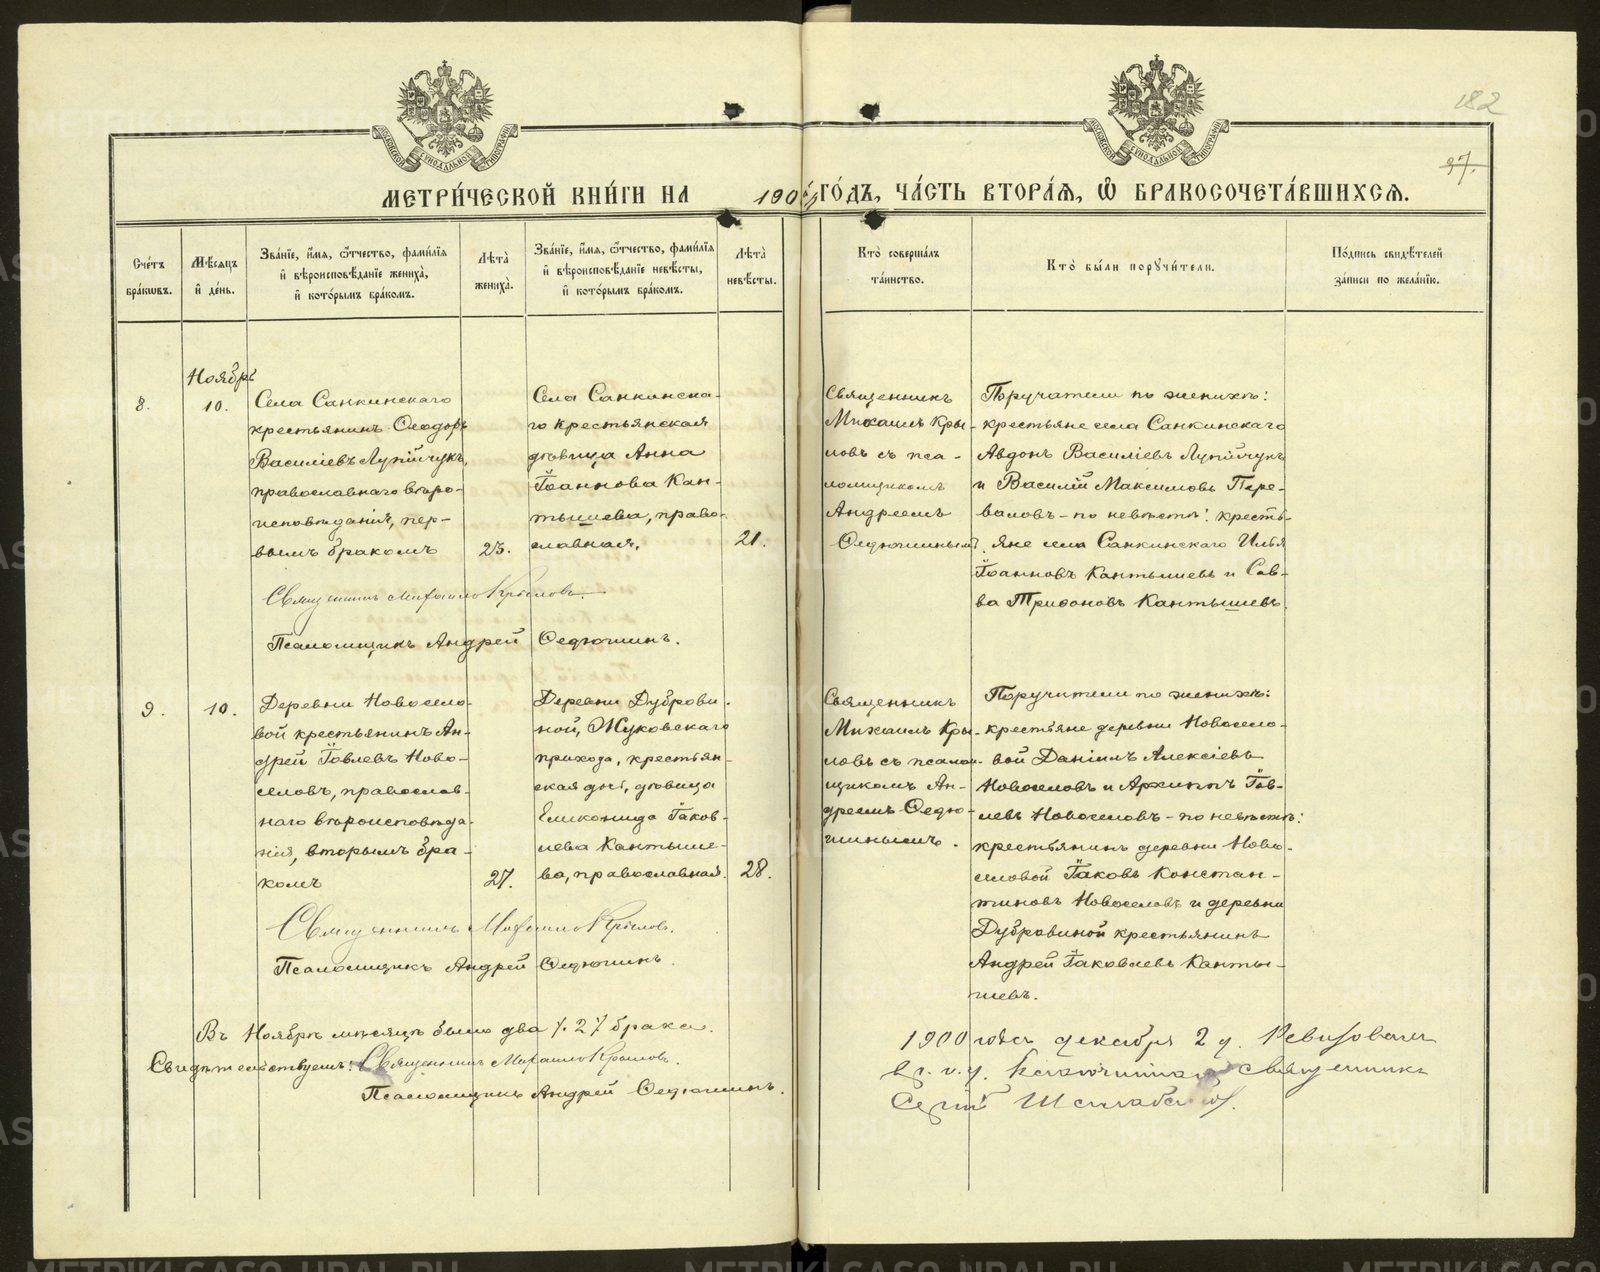 182
97.
МЕТРИ́ЧЕСКОЙ КНИ́ГИ НА 1900 ГО́ДЪ, ЧА́СТЬ ВТОРА́Я, Ѡ БРАКОСОЧЕТА́ВШИХСЯ.
Сче́тъ бра́кѡвъ.
Мѣ́сяцъ и҆ де́нь.
Зва́нїе, и҆́мя, ѻ҆́тчество, фамѝлїя
и҆ вѣроисповѣ́данїе жениха̀,
и҆ кото́рымъ бра́комъ.
Лѣ́та жениха̀.
Зва́нїе, и҆́мя, ѻ҆́тчество, фамѝлїя
и҆ вѣроисповѣ́данїе невѣ́сты,
и҆ кото́рымъ бра́комъ.
Лѣ́та невѣ́сты.
Кто̀ соверша́лъ
та́инство.
Кто̀ бы́ли пору҆чи́тели.
По́дпись свидѣ́телей
за́писи по жела́нїю.
Ноябрь
8.
10.
Села Санкинскаго
крестьянинъ Ѳеодоръ
Василіевъ Лупійчукъ,
православнаго вѣро-
исповѣданія, пер-
вымъ бракомъ
25.
Села Санкинска-
го крестьянская
дѣвица Анна
Іоаннова Кан-
тышева, право-
славная.
21.
Священникъ
Михаилъ Кры-
ловъ съ пса-
ломщикомъ
Андреемъ
Ѳедюшинымъ.
Поручители по женихѣ:
крестьяне села Санкинскаго
Авдонъ Василіевъ Лупійчукъ
и Василій Максимовъ Пере-
валовъ - по невѣстѣ: кресть-
яне села Санкинскаго Илья
Іоанновъ Кантышевъ и Сав-
ва Трифоновъ Кантышевъ.
Священникъ Михаилъ Крыловъ.
Псаломщикъ Андрей Ѳедюшинъ.
9.
10.
Деревни Новосело-
вой крестьянинъ Ан-
дрей Іовлевъ Ново-
селовъ, православ-
наго вѣроисповѣда-
нія, вторымъ бра-
комъ
27.
Деревни Дуброви-
ной, Жуковскаго
прихода, крестьян-
ская дѣвица
Гликонида Іаков-
лева Кантыше-
ва, православная.
28.
Священникъ
Михаилъ Кры-
ловъ съ псалом-
щикомъ Ан-
дреемъ Ѳедю-
шинымъ.
Поручители по женихѣ:
крестьяне деревни Новосело-
вой Даніилъ Алексіевъ
Новоселовъ и Архиппъ Іов-
левъ Новоселовъ - по невѣстѣ:
крестьянинъ деревни Ново-
селовой Іаковъ Констан-
тиновъ Новоселовъ и деревни
Дубровиной крестьянинъ
Андрей Іаковлевъ Канты-
шевъ.
Священникъ Михаилъ Крыловъ.
Псаломщикъ Андрей Ѳедюшинъ.
Въ Ноябрѣ мѣсяцѣ было два /. 2 / брака.
Свидѣтельствуемъ: Священникъ Михаилъ Крыловъ.
Псаломщикъ Андрей Ѳедюшинъ.
1900 года декабря 2 д. Ревизовалъ
священникъ
Сергій